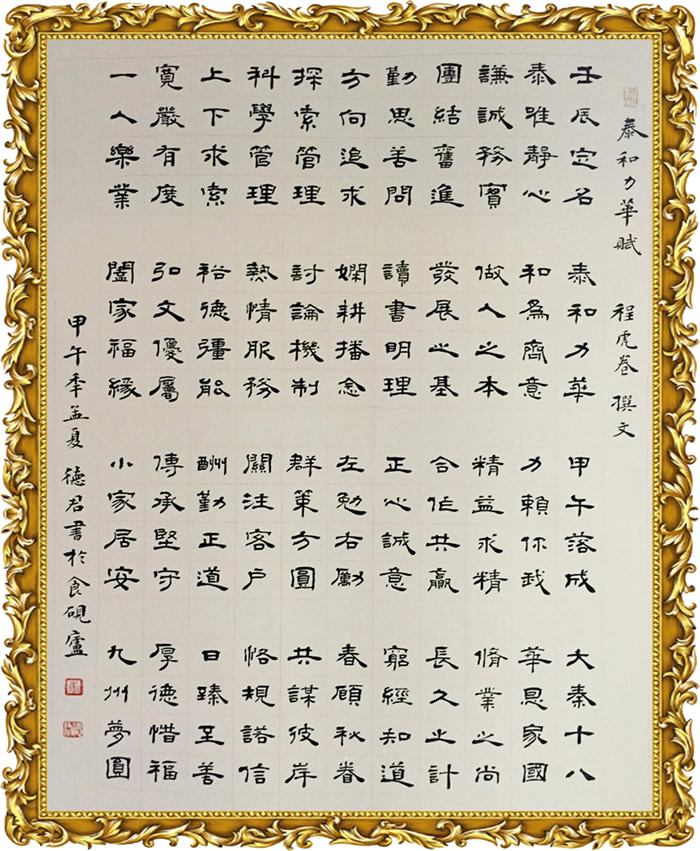 泰和力華賦 程虎卷 撰文
壬辰定名 泰和力華 甲午落成 大秦十八
泰雅靜心 和爲齊意 力賴你我 華恩家國
謙誠務實 做人之本 精益求精 脩業之尚
團結奮進 發展之基 合作共贏 長久之計
勤思善問 讀書明理 正心誠意 窮經知道
方向追求 嫻耕播念 左勉右勵 春顧秋眷
探索管理 討論機制 群策方圓 共謀彼岸
科學管理 熱情服務 關注客戶 恪規諾信
上下求索 裕德彊能 酬勤正道 日臻至善
寬嚴有度 弘文優屬 傳承堅守 厚德惜福
一人樂業 闔家福緣 小家居安 九州夢圓
甲午季孟夏 德君書於食硯廬